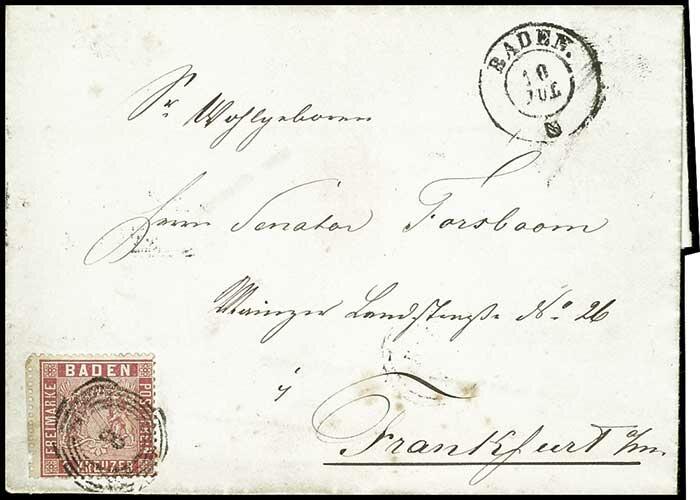 BADEN.
10
JUL
Sr. Wohlgeboren
Herrn Senator Forsboom
Mainzer Landstraße No. 26
Frankfurt a/m.
BADEN
FREIMARKE
POSTVEREIN
KREUZER